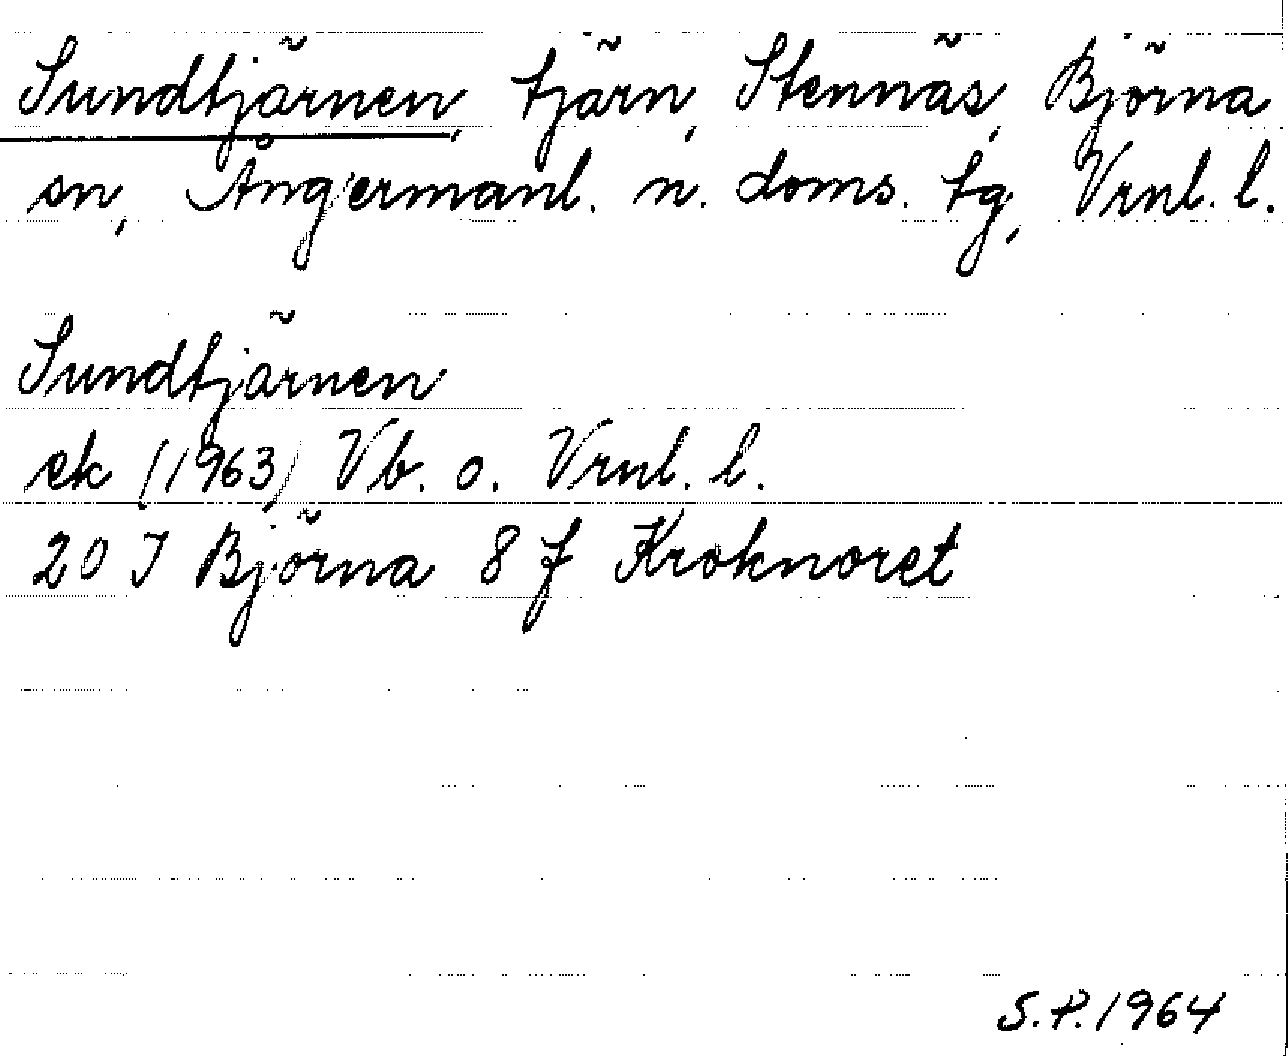 Sundtjärnen, tjärn, Stennäs, Björna
sn, Ångermanl. n. doms. tg, Vrnl. l.
Sundtjärnen
ek (1963) Vb. o. Vrnl. l.
20 J Björna 8 f Kroknoret
S.P. 1964